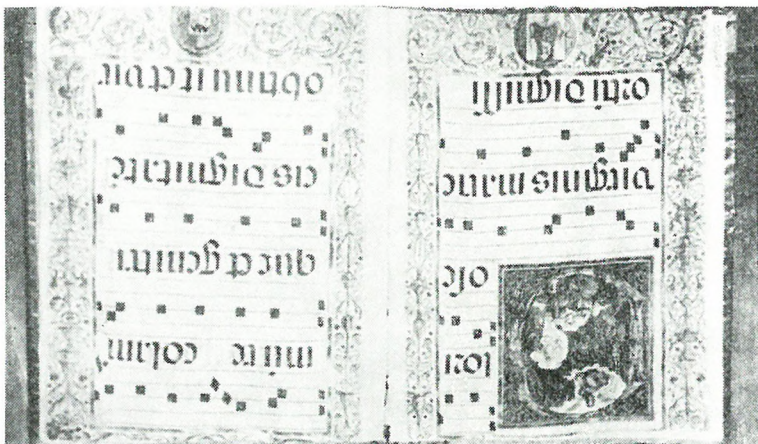 lori
ose
virginis marie
ortū dignissi
mū re colam
que et genitri
cis dignitatē
obtinuit et vir